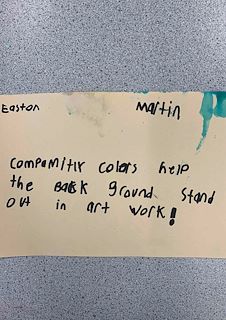 Easton Martin
compamitir colors help
the back ground stand
out in art work!